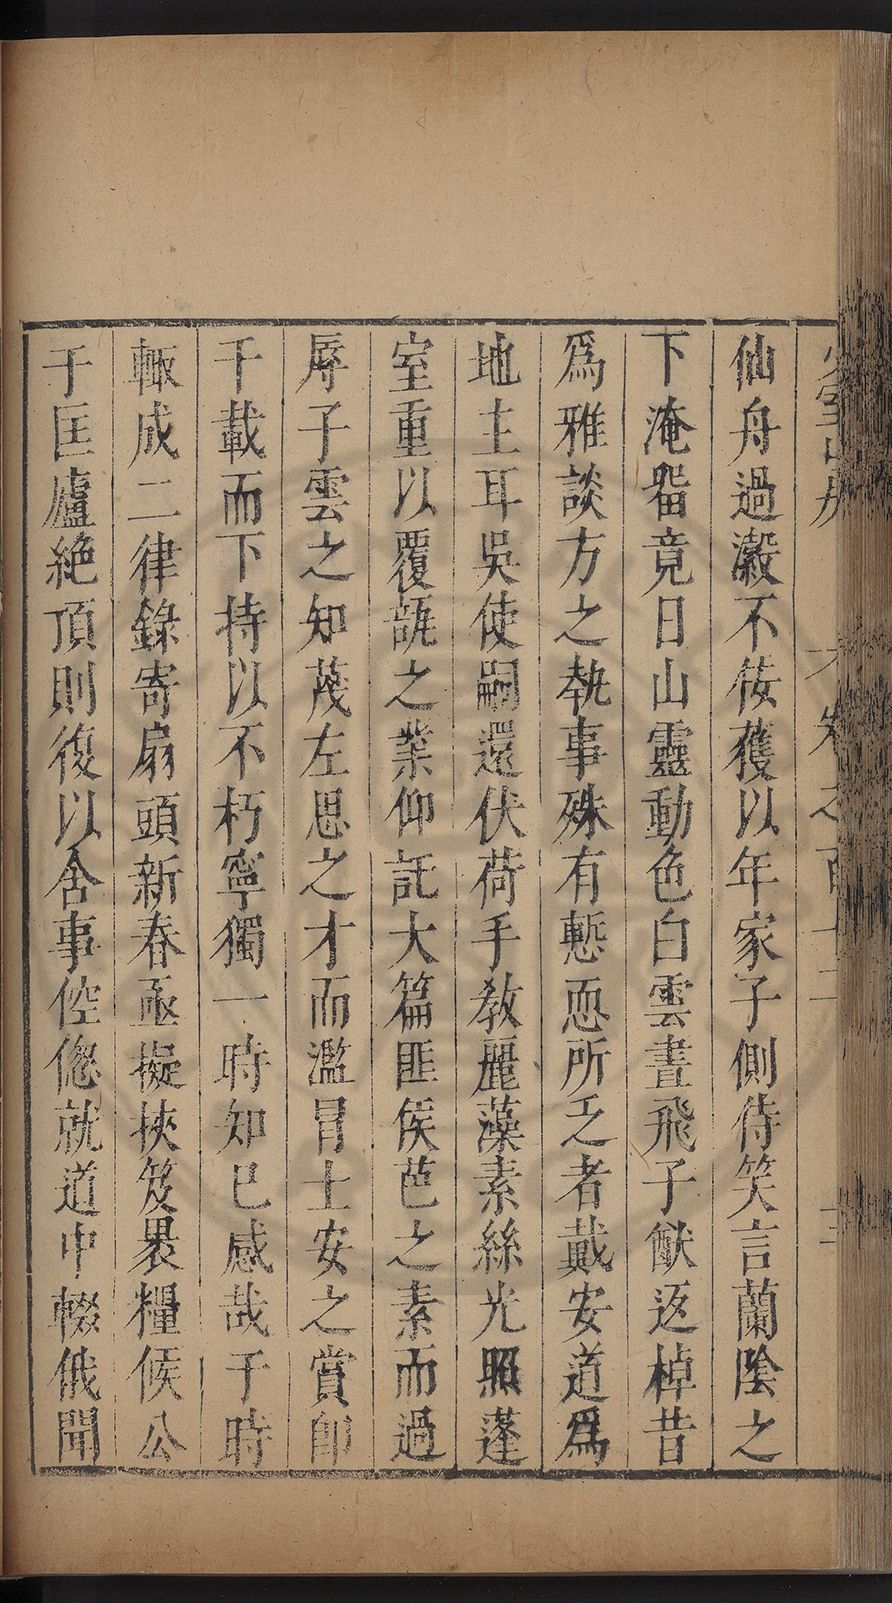 卷之百十二
仙舟過瀫不佞獲以年家子側侍笑言蘭陰之
下淹畱竟日山靈動色白雲晝飛子猷返棹昔
爲雅談方之執事殊有慙恧所乏者戴安道爲
地主耳吳使嗣還伏荷手敎麗藻素絲光照蓬
室重以覆瓿之業仰託大篇匪侯芭之素而過
辱子雲之知蔑左思之才而濫冒士安之賞卽
千載而下持以不朽寧獨一時知已感哉于時
輙成二律錄寄扇頭新春亟擬挾笈褁糧候公
于匡廬絶頂則復以舍事倥傯就道中輟俄聞